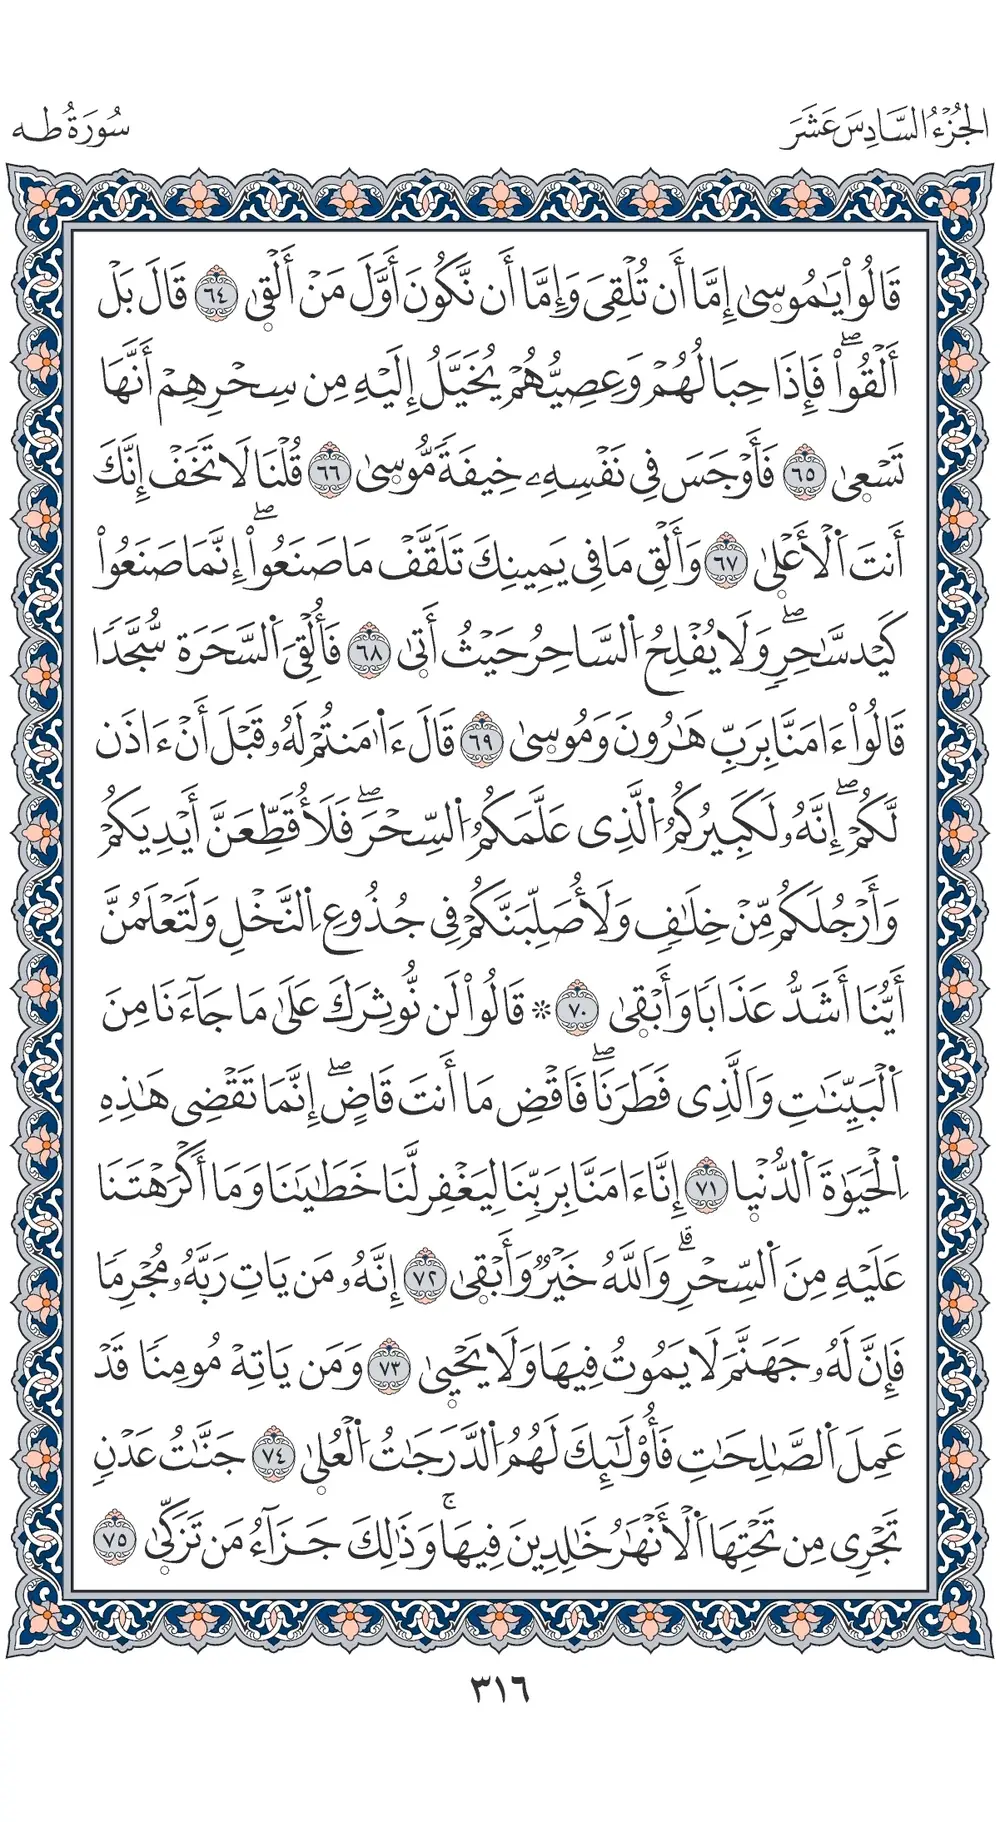 الجُزْءُ السَّادِسَ عَشَرَ
سُورَةُ طه
قَالُواْ يَٰمُوسىٰ إِمَّا أَن تُلْقِىَ وَإِمَّا أَن نَّكُونَ أَوَّلَ مَنْ أَلْقىٰ ٦٤ قَالَ بَلْ
أَلْقُواْۖ فَإِذَا حِبَالُهُمْ وَعِصِيُّهُمْ يُخَيَّلُ إِلَيْهِ مِن سِحْرِهِمْ أَنَّهَا
تَسْعىٰ ٦٥ فَأَوْجَسَ فِي نَفْسِهِۦ خِيفَةً مُّوسىٰ ٦٦ قُلْنَا لَا تَخَفْ إِنَّكَ
أَنتَ اَلْأَعْلىٰ ٦٧ وَأَلْقِ مَا فِي يَمِينِكَ تَلَقَّفْ مَا صَنَعُواْۖ إِنَّمَا صَنَعُواْ
كَيْد سَّٰحِرٍۖ وَلَا يُفْلِحُ اُلسَّاحِرُ حَيْثُ أَتىٰ ٦٨ فَأُلْقِىَ اَلسَّحَرَة سُّجَّدًا
قَالُواْ ءَامَنَّا بِرَبِّ هَٰرُونَ وَمُوسىٰ ٦٩ قَالَ ءَاٰمَنتُمْ لَهُۥ قَبْلَ أَنْ ءَاذَن
لَّكُمْۖ إِنَّهُۥ لَكَبِيرُكُمُ اُلَّذِى عَلَّمَكُمُ اُلسِّحْرَۖ فَلَأُقَطِّعَنَّ أَيْدِيَكُمْ
وَأَرْجُلَكُم مِّنْ خِلَٰفٍ وَلَأُصَلِّبَنَّكُمْ فِي جُذُوعِ اِلنَّخْلِ وَلَتَعْلَمُنَّ
أَيُّنَا أَشَدُّ عَذَابًا وَأَبْقىٰ ٧٠ ۞ قَالُواْ لَن نُّوثِرَكَ عَلَىٰ مَا جَآءَنَا مِنَ
اَلْبَيِّنَٰتِ وَالَّذِى فَطَرَنَاۖ فَاقْضِ مَا أَنتَ قَاضٍۖ إِنَّمَا تَقْضِى هَٰذِهِ
اِلْحَيَوٰةَ اَلدُّنْيٰا ٧١ إِنَّا ءَامَنَّا بِرَبِّنَا لِيَغْفِر لَّنَا خَطَٰيَٰنَا وَمَا أَكْرَهْتَنَا
عَلَيْهِ مِنَ اَلسِّحْرِۗ وَاللَّهُ خَيْرٌ وَأَبْقىٰ ٧٢ إِنَّهُۥ مَن يَاتِ رَبَّهُۥ مُجْرِمًا
فَإِنَّ لَهُۥ جَهَنَّمَ لَا يَمُوتُ فِيهَا وَلَا يَحْيىٰ ٧٣ وَمَن يَاتِهْ مُومِنًا قَدْ
عَمِلَ اَلصَّٰلِحَٰتِ فَأُوْلَٰٓئِكَ لَهُمُ اُلدَّرَجَٰتُ اُلْعُلىٰ ٧٤ جَنَّٰتُ عَدْنٍ
تَجْرِى مِن تَحْتِهَا اَلْأَنْهَٰرُ خَٰلِدِينَ فِيهَاۚ وَذَٰلِكَ جَزَآءُ مَن تَزَكّىٰ ٧٥
٣١٦